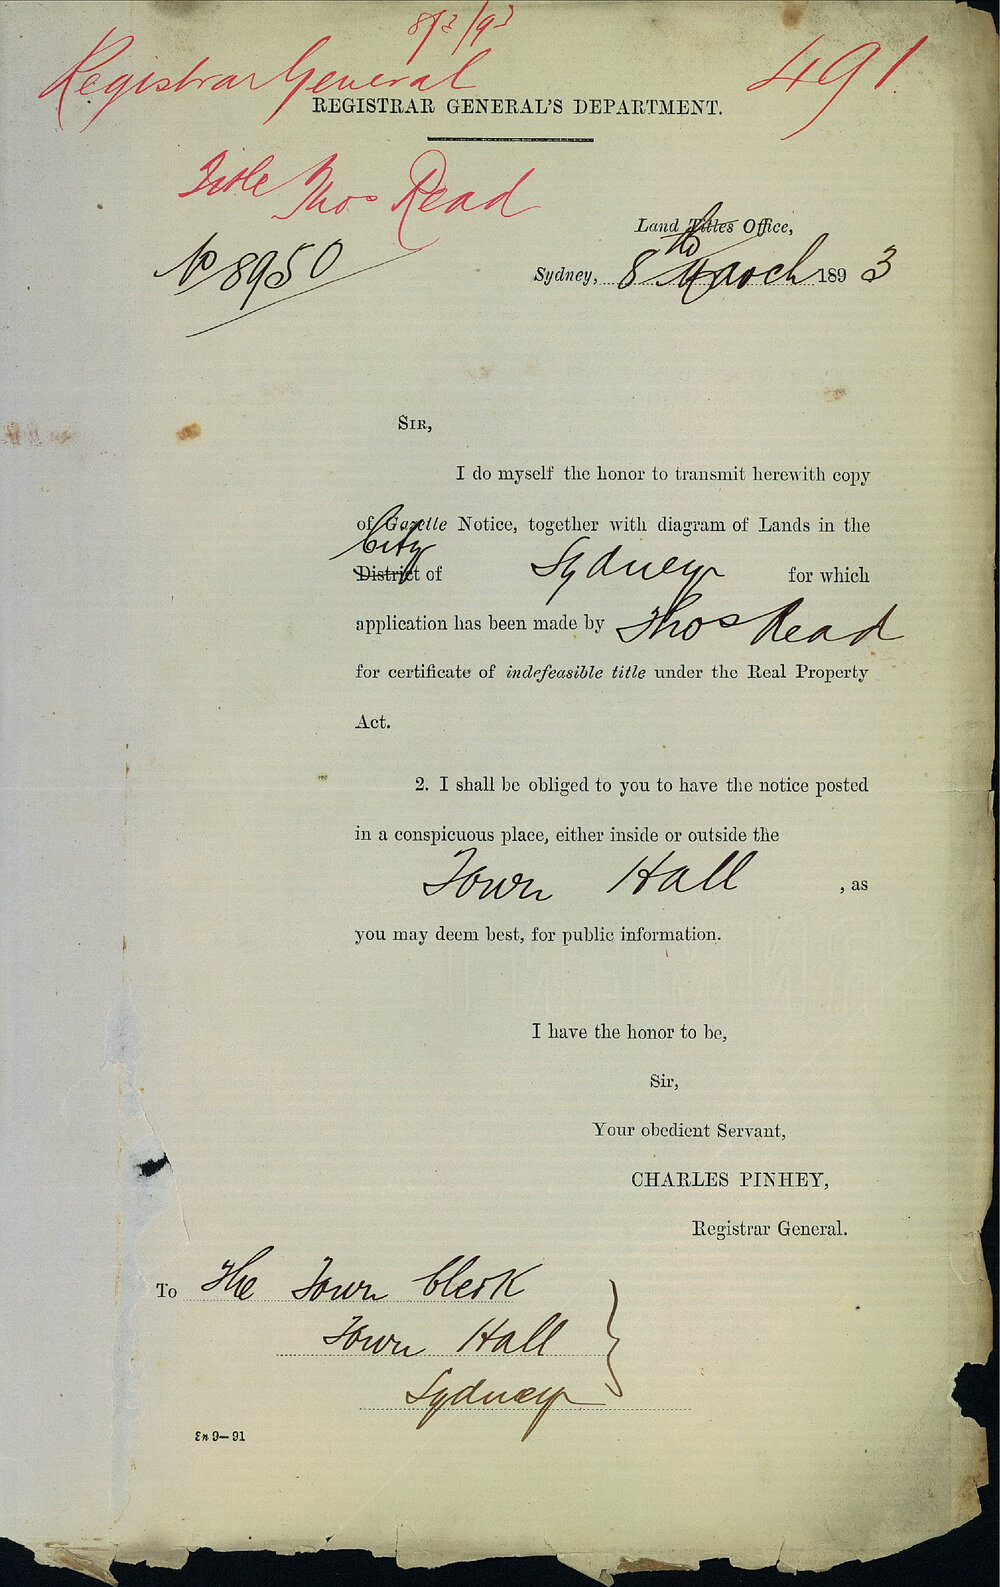 8/3/93
Registrar General 491
REGISTRAR GENERAL'S DEPARTMENT.
Title Thos Read
Land Titles Office,
No 8950
Sydney, 8th March 1893
SIR,
I do myself the honor to transmit herewith copy
of Gazette Notice, together with diagram of Lands in the
City
District of Sydney for which
application has been made by Thos Read
for certificate of indefeasible title under the Real Property
Act.
2. I shall be obliged to you to have the notice posted
in a conspicuous place, either inside or outside the
Town Hall , as
you may deem best, for public information.
I have the honor to be,
Sir,
Your obedient Servant,
CHARLES PINHEY,
Registrar General.
To The Town Clerk
Town Hall
Sydney
9—91